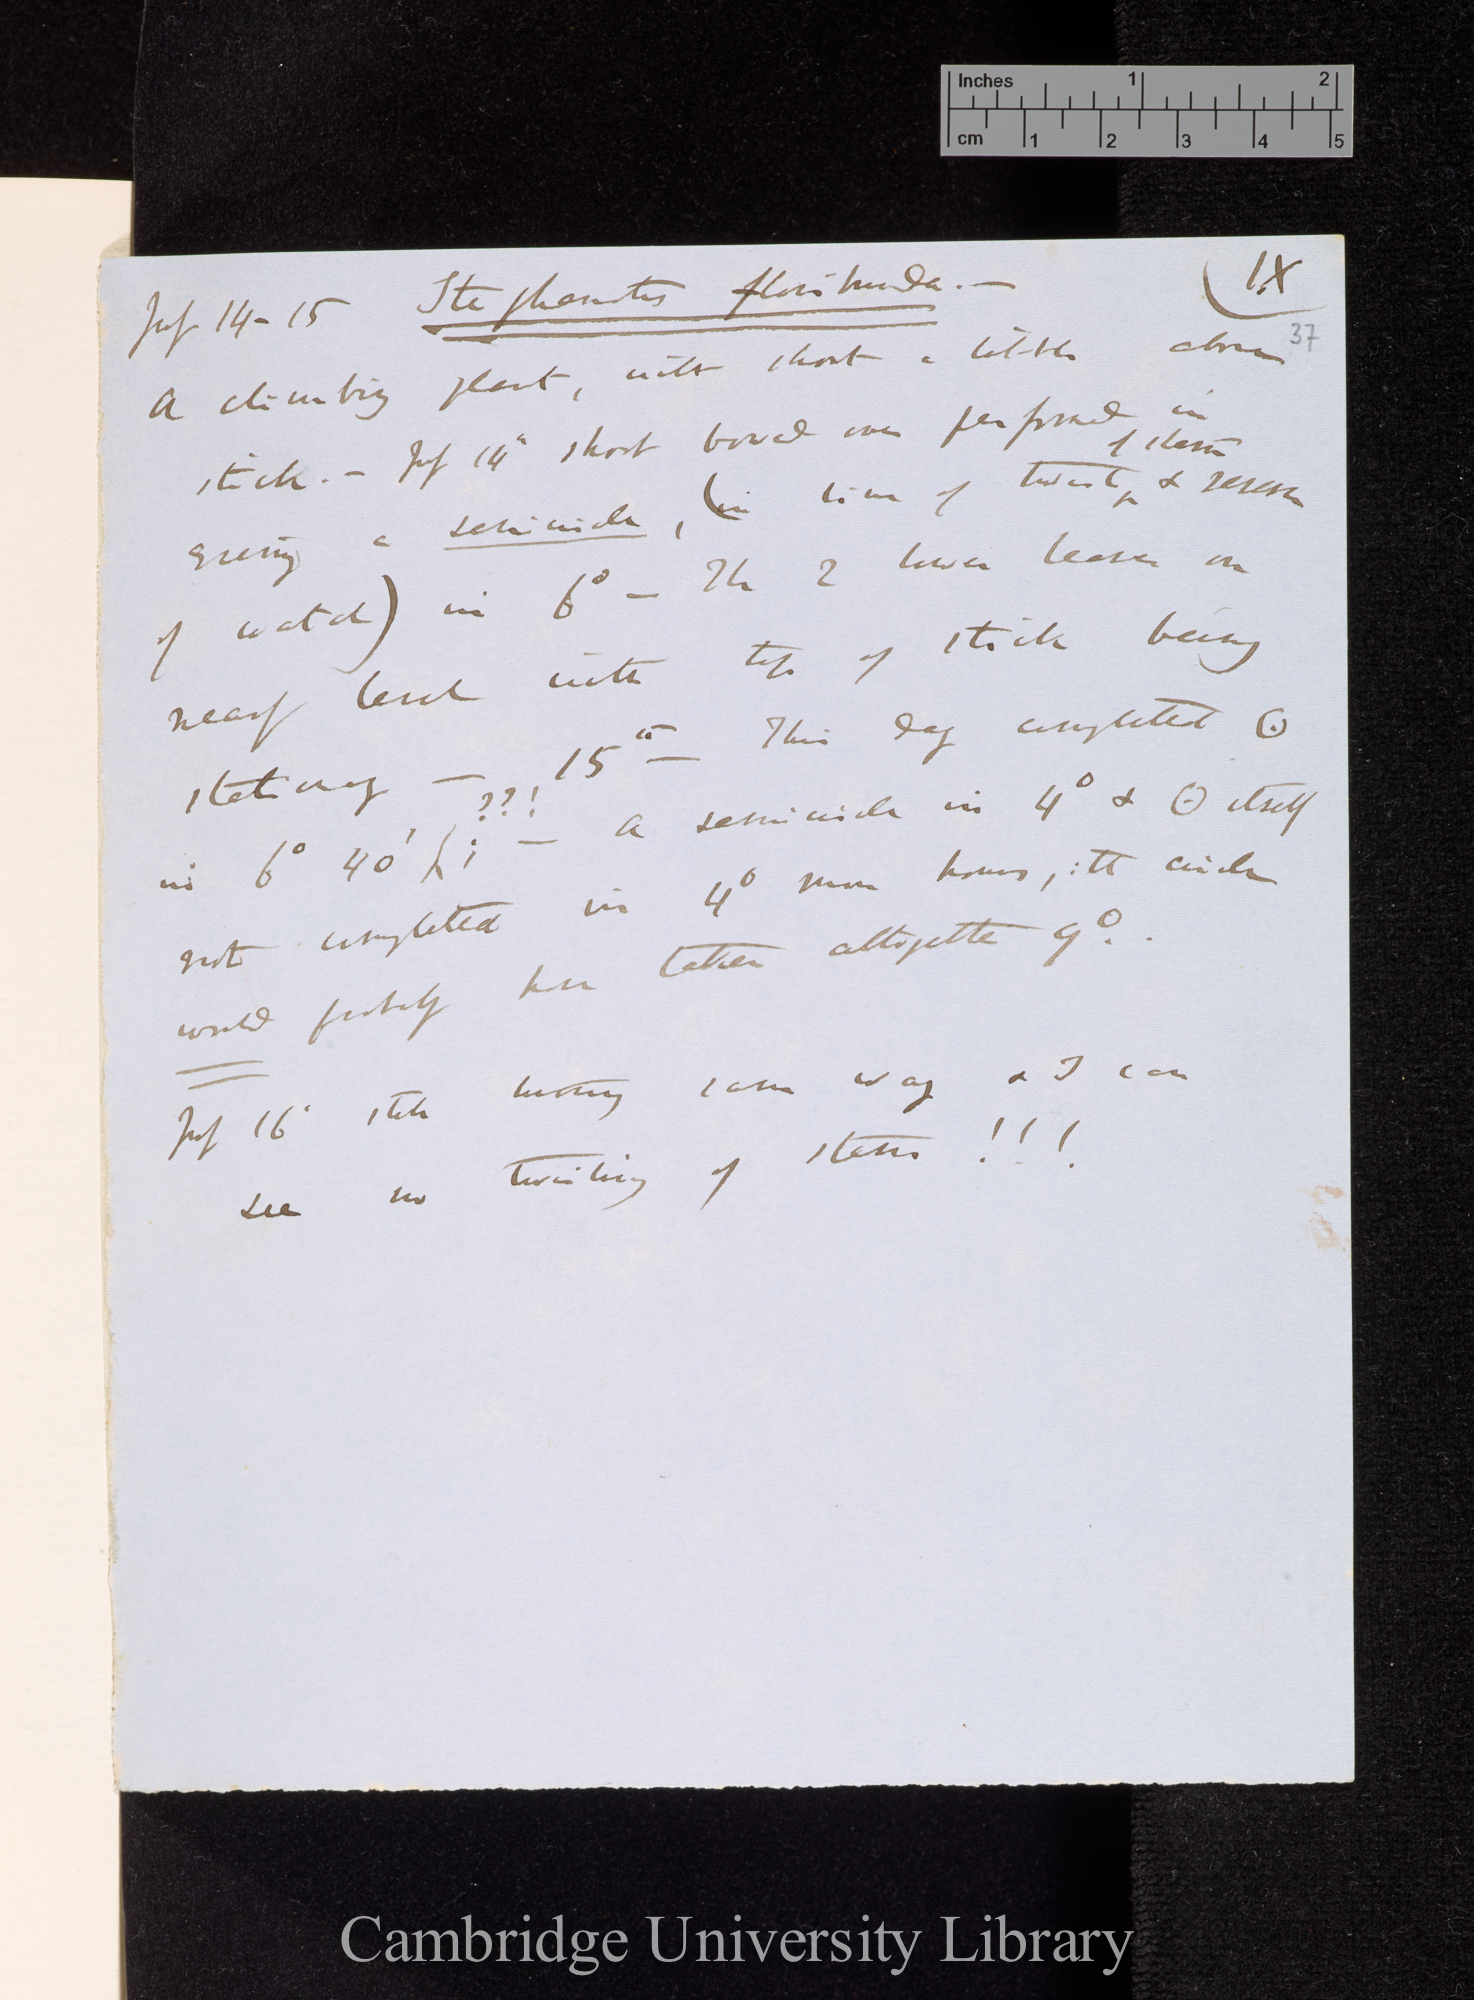 Inches 1 2
cm 1 2 3 4 5
(IX
37
July 14-15 Stephanotis floribunda.—
A climbing plant, with shoot a little above
stick.— July 14th shoot bowed over performed in
evening a semicircle, (in line of twist of stem & reverse
of watch) in 6° — The 2 lower leaves on
nearly level with top of stick being
stationary — 15th — This day completed ⊙
in 6° 40' ??! — A semicircle in 4° & ⊙ itself
not completed in 4° more hours, : the circle
would probably have taken altogether 9°.
July 16th still moving same way & I can
see no twisting of stem!!!
Cambridge University Library